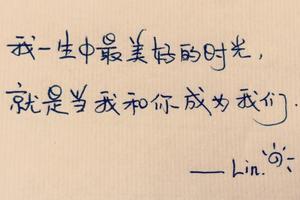 我一生中最美好的时光，
就是当我和你成为我们.
——Lin.